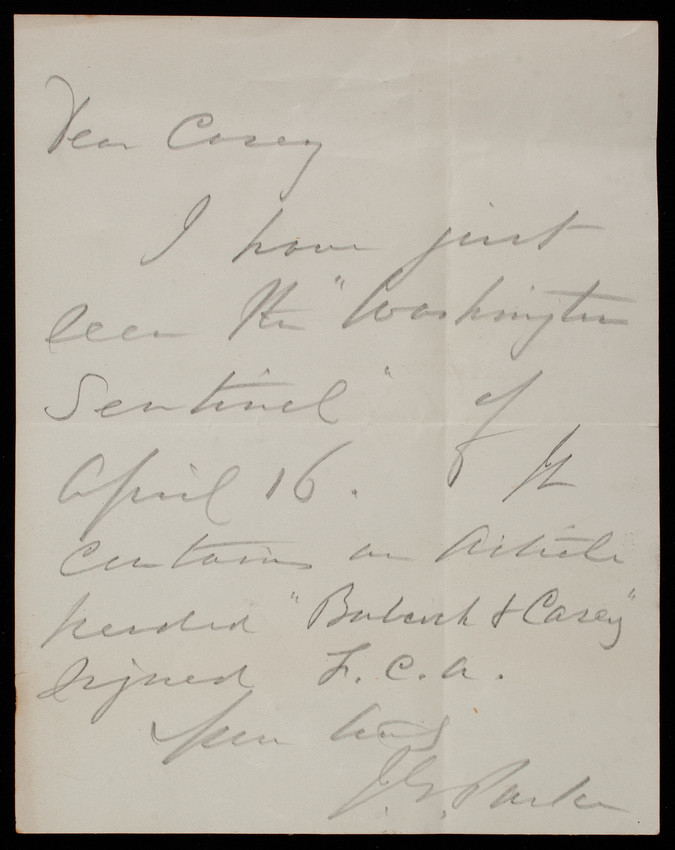 Dear Casey
I have just
seen the "Washington
Sentinel" of
April 16. It
contains an Article
headed "Babcock & Casey"
signed F. C. A.
J. G. Parke